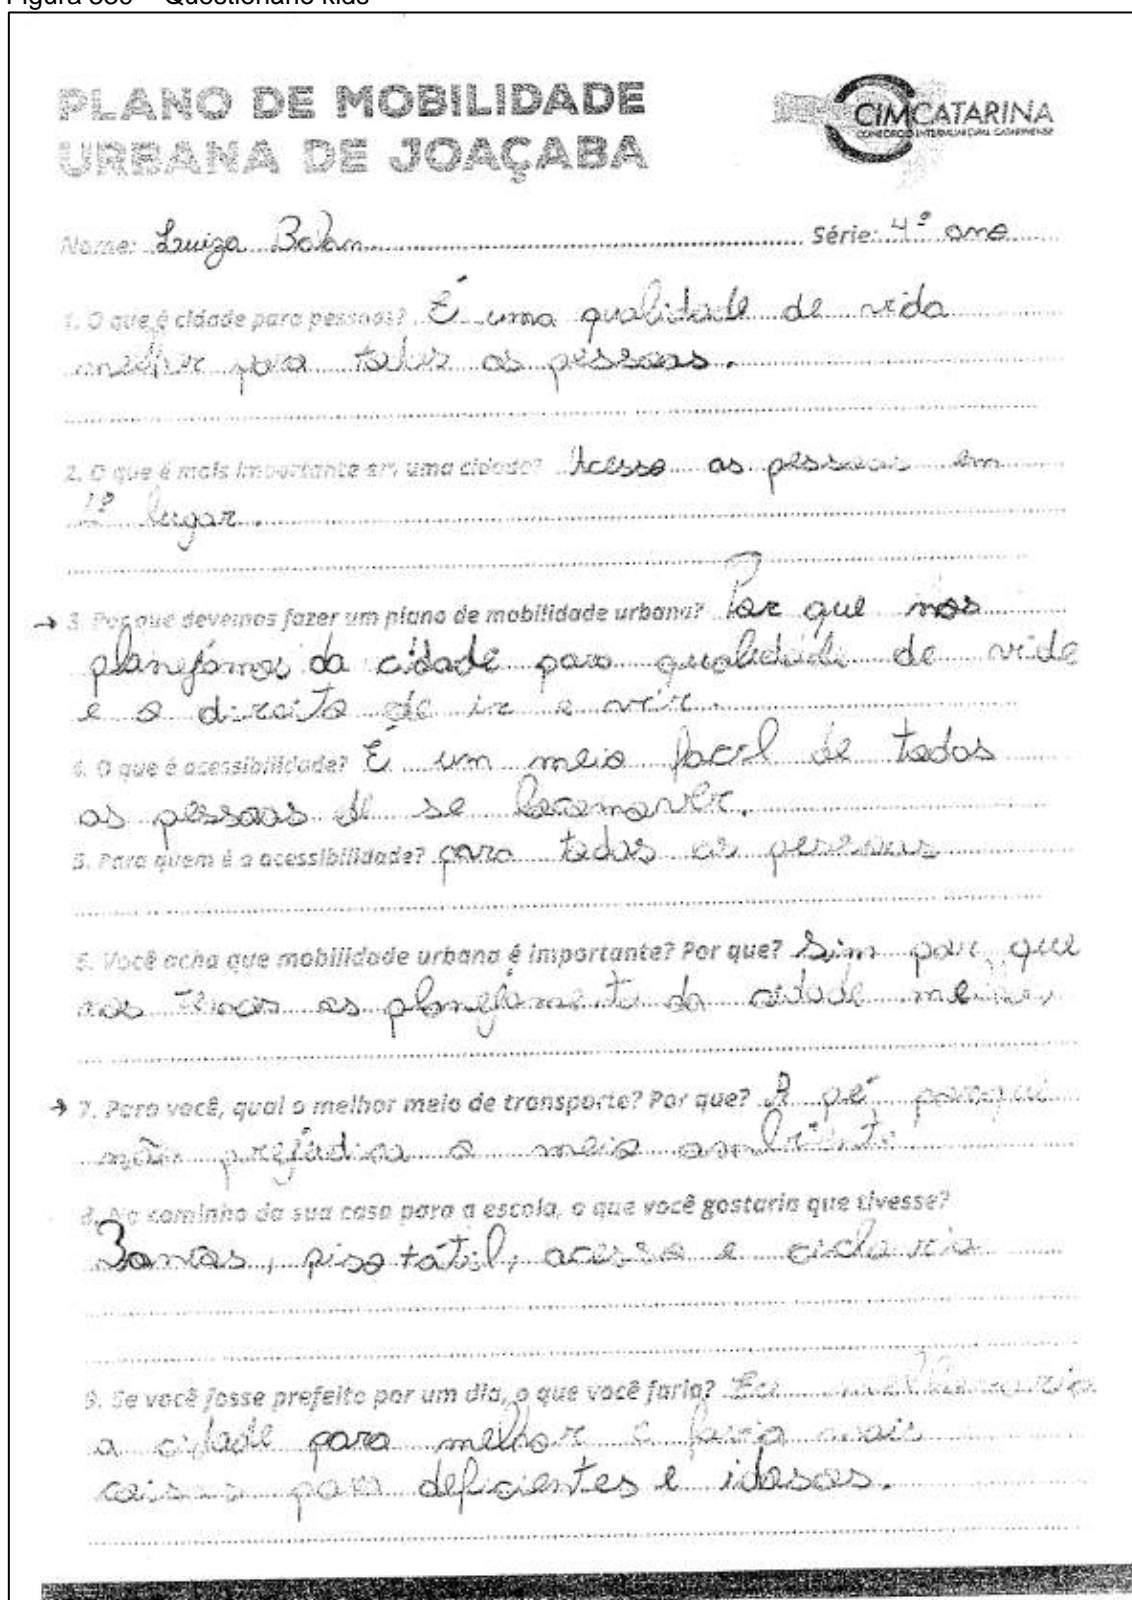 Questionário kids
PLANO DE MOBILIDADE
URBANA DE JOAÇABA
CIMCATARINA
CONSÓRCIO INTERMUNICIPAL CATARINENSE
Nome: Luiza Série: 4º ano
1. O que é cidade para pessoas? É uma qualidade de vida
melhor para todas as pessoas.
2. O que é mais importante em uma cidade? Acesso as pessoas em
1º lugar.
→ 3. Por que devemos fazer um plano de mobilidade urbana? Por que nos
planejamos da cidade para qualidade de vida
e o direito de ir e vir.
4. O que é acessibilidade? É um meio facil de todas
as pessoas de se locomover.
5. Para quem é a acessibilidade? para todas as pessoas
6. Você acha que mobilidade urbana é importante? Por que? Sim por que
nos as planejamento da cidade
→ 7. Para você, qual o melhor meio de transporte? Por que? A pé porque
não prejudica o meio ambiente
8. No caminho da sua casa para a escola, o que você gostaria que tivesse?
Bancos, piso tátil, acesso e ciclo via
9. Se você fosse prefeito por um dia, o que você faria? Eu
a cidade para melhor e faria mais
coisas para deficientes e idosos.